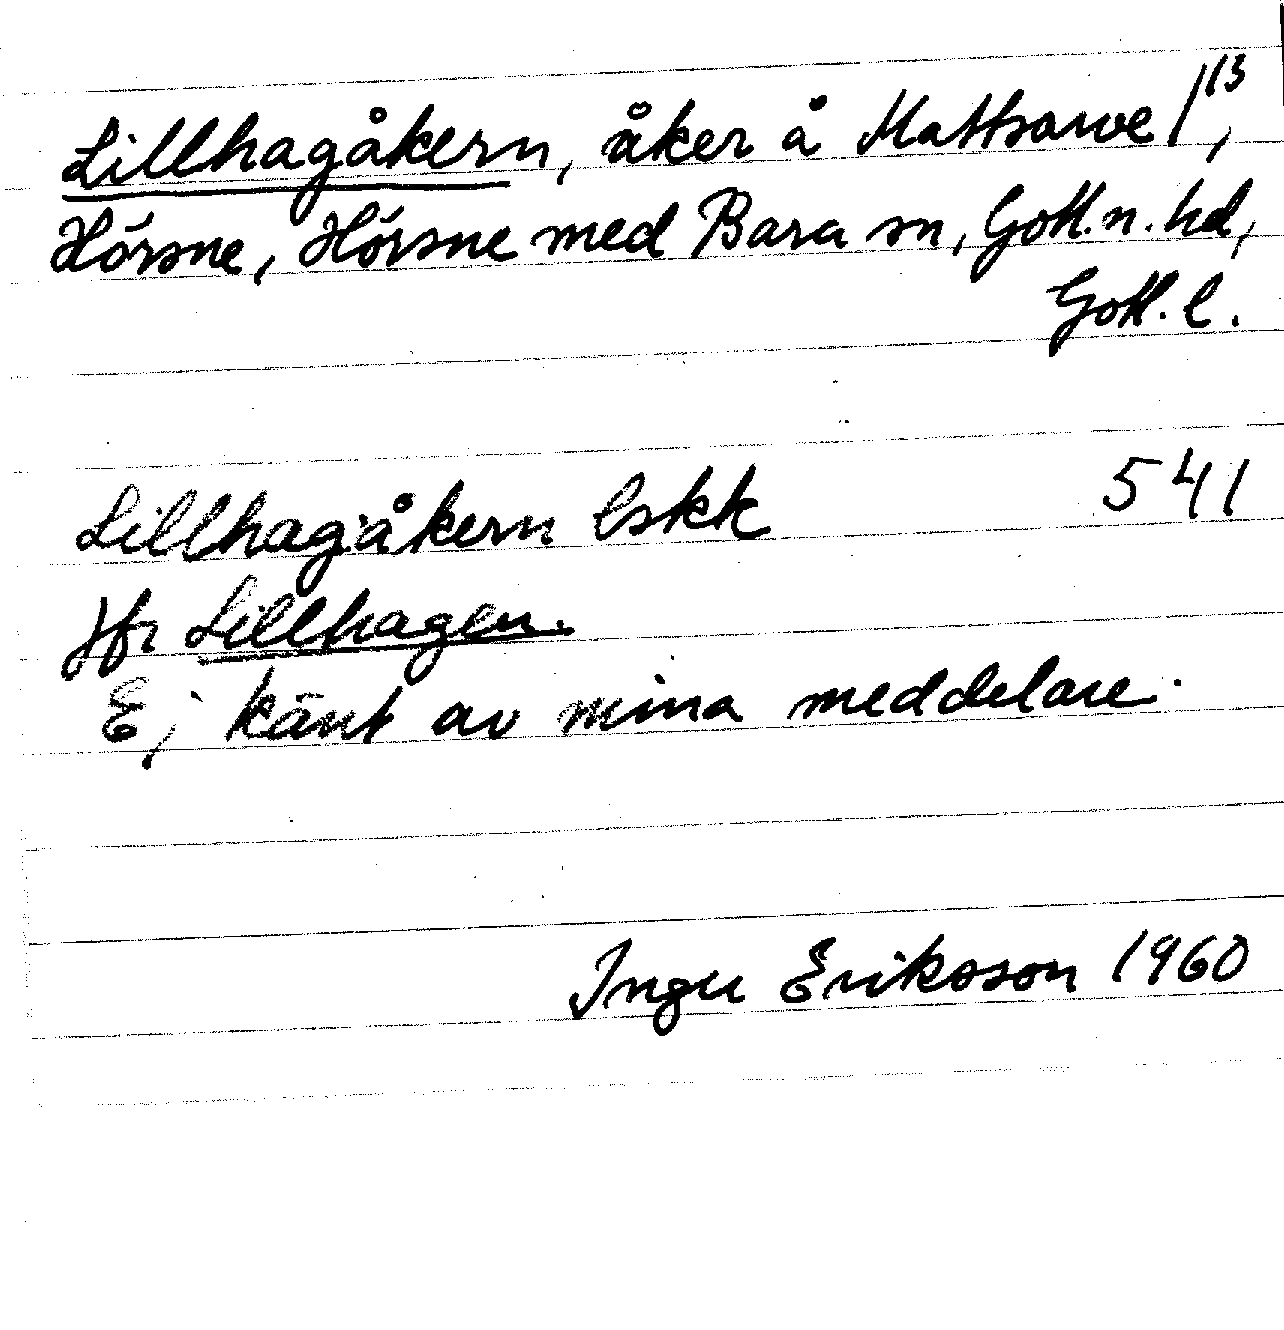 Lillhagåkern, åker å Mattsarve 1¹³,
Hörsne, Hörsne med Bara sn, Gotl. n. hd,
Gotl. l.
Lillhagåkern lskk 541
Jfr Lillhagen.
Ej känt av mina meddelare.
Inger Eriksson 1960